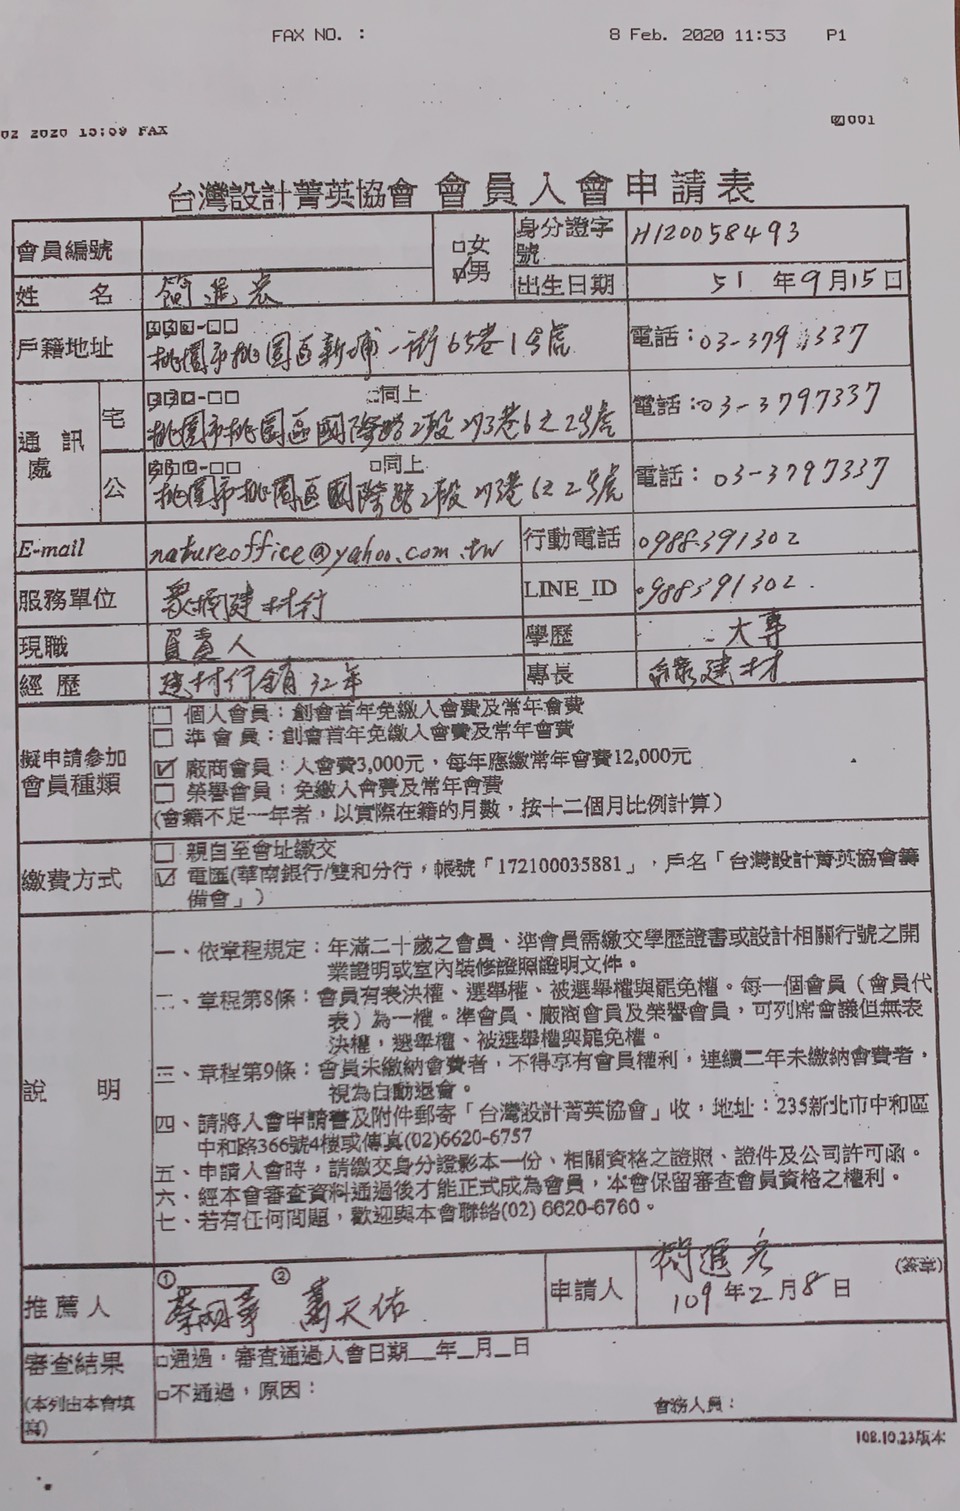 FAX NO. : 8 Feb. 2020 11:53 P1
02 2020 10:09 FAX 001
台灣設計菁英協會 會員入會申請表
會員編號 □女 ☑男 身分證字號 H120058493
姓 名 簡進宏 出生日期 51 年9月15日
戶籍地址 330-□□ 電話:03-379 337
桃園市桃園區新埔一街65巷1號
通訊處 宅 330-□□ □同上 電話:03-3797337
桃園市桃園區國際路2段273巷6之2號
公 330-□□ □同上 電話:03-3797337
桃園市桃園區國際路2段273巷6之2號
E-mail natureoffice@yahoo.com.tw 行動電話 0988-391302
服務單位 建材行 LINE_ID 0988391302.
現職 負責人 學歷 大專
經歷 建材行銷32年 專長 建材
擬申請參加會員種類 □ 個人會員:創會首年免繳入會費及常年會費
□ 準會員:創會首年免繳入會費及常年會費
☑ 廠商會員:入會費3,000元,每年應繳常年會費12,000元
□ 榮譽會員:免繳入會費及常年會費
(會籍不足一年者,以實際在籍的月數,按十二個月比例計算)
繳費方式 □ 親自至會址繳交
☑ 電匯(華南銀行/雙和分行,帳號「172100035881」,戶名「台灣設計菁英協會籌
備會」)
說 明
一、依章程規定:年滿二十歲之會員、準會員需繳交學歷證書或設計相關行號之開
業證明或室內裝修證照證明文件。
二、章程第8條:會員有表決權、選舉權、被選舉權與罷免權。每一個會員(會員代
表)為一權。準會員、廠商會員及榮譽會員,可列席會議但無表
決權,選舉權、被選舉權與罷免權。
三、章程第9條:會員未繳納會費者,不得享有會員權利,連續二年未繳納會費者,
視為自動退會。
四、請將入會申請書及附件郵寄「台灣設計菁英協會」收,地址:235新北市中和區
中和路366號4樓或傳真(02)6620-6757
五、申請入會時,請繳交身分證影本一份、相關資格之證照、證件及公司許可函。
六、經本會審查資料通過後才能正式成為會員,本會保留審查會員資格之權利。
七、若有任何問題,歡迎與本會聯絡(02) 6620-6760。
推薦人 ① 蔡明章 ② 天佑 申請人 簡進宏 (簽章)
109年2月8日
審查結果 □通過,審查通過入會日期__年_月_日
(本列由本會填寫) □不通過,原因:
會務人員:
108.10.23版本